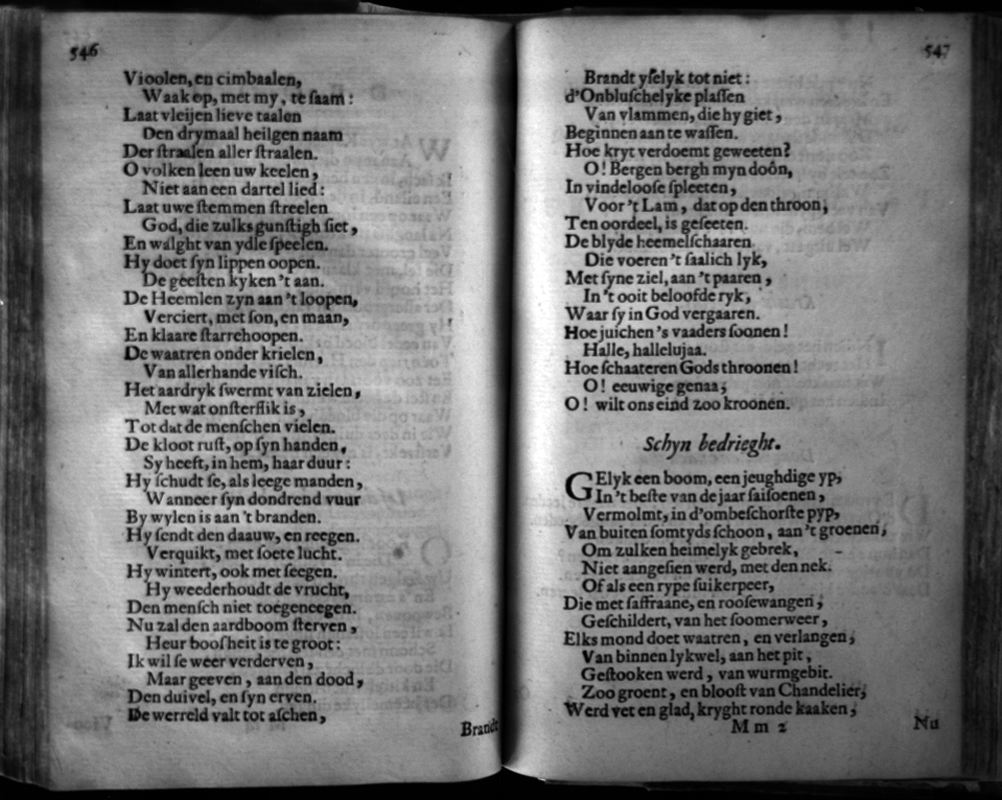 546
Vioolen, en cimbaalen,
Waak op, met my, te ſaam :
Laat vleijen lieve taalen
Den drymaal heilgen naam
Der ſtraalen aller ſtraalen.
O volken leen uw keelen,
Niet aan een dartel lied :
Laat uwe ſtemmen ſtreelen
God, die zulks gunſtigh ſiet,
En walght van ydle ſpeelen.
Hy doet ſyn lippen oopen.
De geeſten kyken 't aan.
De Heemlen zyn aan 't loopen,
Verciert, met ſon, en maan,
En klaare ſtarrehoopen.
De waatren onder krielen,
Van allerhande viſch.
Het aardryk ſwermt van zielen,
Met wat onſterflik is,
Tot dat de menſchen vielen.
De kloot ruſt, op ſyn handen,
Sy heeft, in hem, haar duur :
Hy ſchudt ſe, als leege manden,
Wanneer ſyn dondrend vuur
By wylen is aan 't branden.
Hy ſendt den daauw, en reegen.
Verquikt, met ſoete lucht.
Hy wintert, ook met ſeegen.
Hy weederhoudt de vrucht,
Den menſch niet toegeneegen.
Nu zal den aardboom ſterven,
Heur boosheit is te groot :
Ik wil ſe weer verderven,
Maar geeven, aan den dood,
Den duivel, en ſyn erven.
De werreld valt tot aſchen,
Brandt
547
Brandt yſelyk tot niet :
d'Onbluſchelyke plaſſen
Van vlammen, die hy giet,
Beginnen aan te waſſen.
Hoe kryt verdoemt geweeten?
O! Bergen bergh myn doôn,
In vindelooſe ſpleeten,
Voor 't Lam, dat op den throon,
Ten oordeel, is geſeeten.
De blyde heemelſchaaren
Die voeren 't ſaalich lyk,
Met ſyne ziel, aan 't paaren,
In 't ooit beloofde ryk,
Waar ſy in God vergaaren.
Hoe juichen 's vaaders ſoonen!
Halle, hallelujaa.
Hoe ſchaateren Gods throonen!
O! eeuwige genaa,
O! wilt ons eind zoo kroonen.
Schyn bedrieght.
GElyk een boom, een jeughdige yp,
In 't beſte van de jaar ſaiſoenen,
Vermolmt, in d'ombeſchorſte pyp,
Van buiten ſomtyds ſchoon, aan 't groenen,
Om zulken heimelyk gebrek,
Niet aangeſien werd, met den nek.
Of als een rype ſuikerpeer,
Die met ſaffraane, en rooſewangen,
Geſchildert, van het ſoomerweer,
Elks mond doet waatren, en verlangen,
Van binnen lykwel, aan het pit,
Geſtooken werd, van wurmgebit.
Zoo groent, en blooſt van Chandelier,
Werd vet en glad, kryght ronde kaaken,
M m 2
Nu